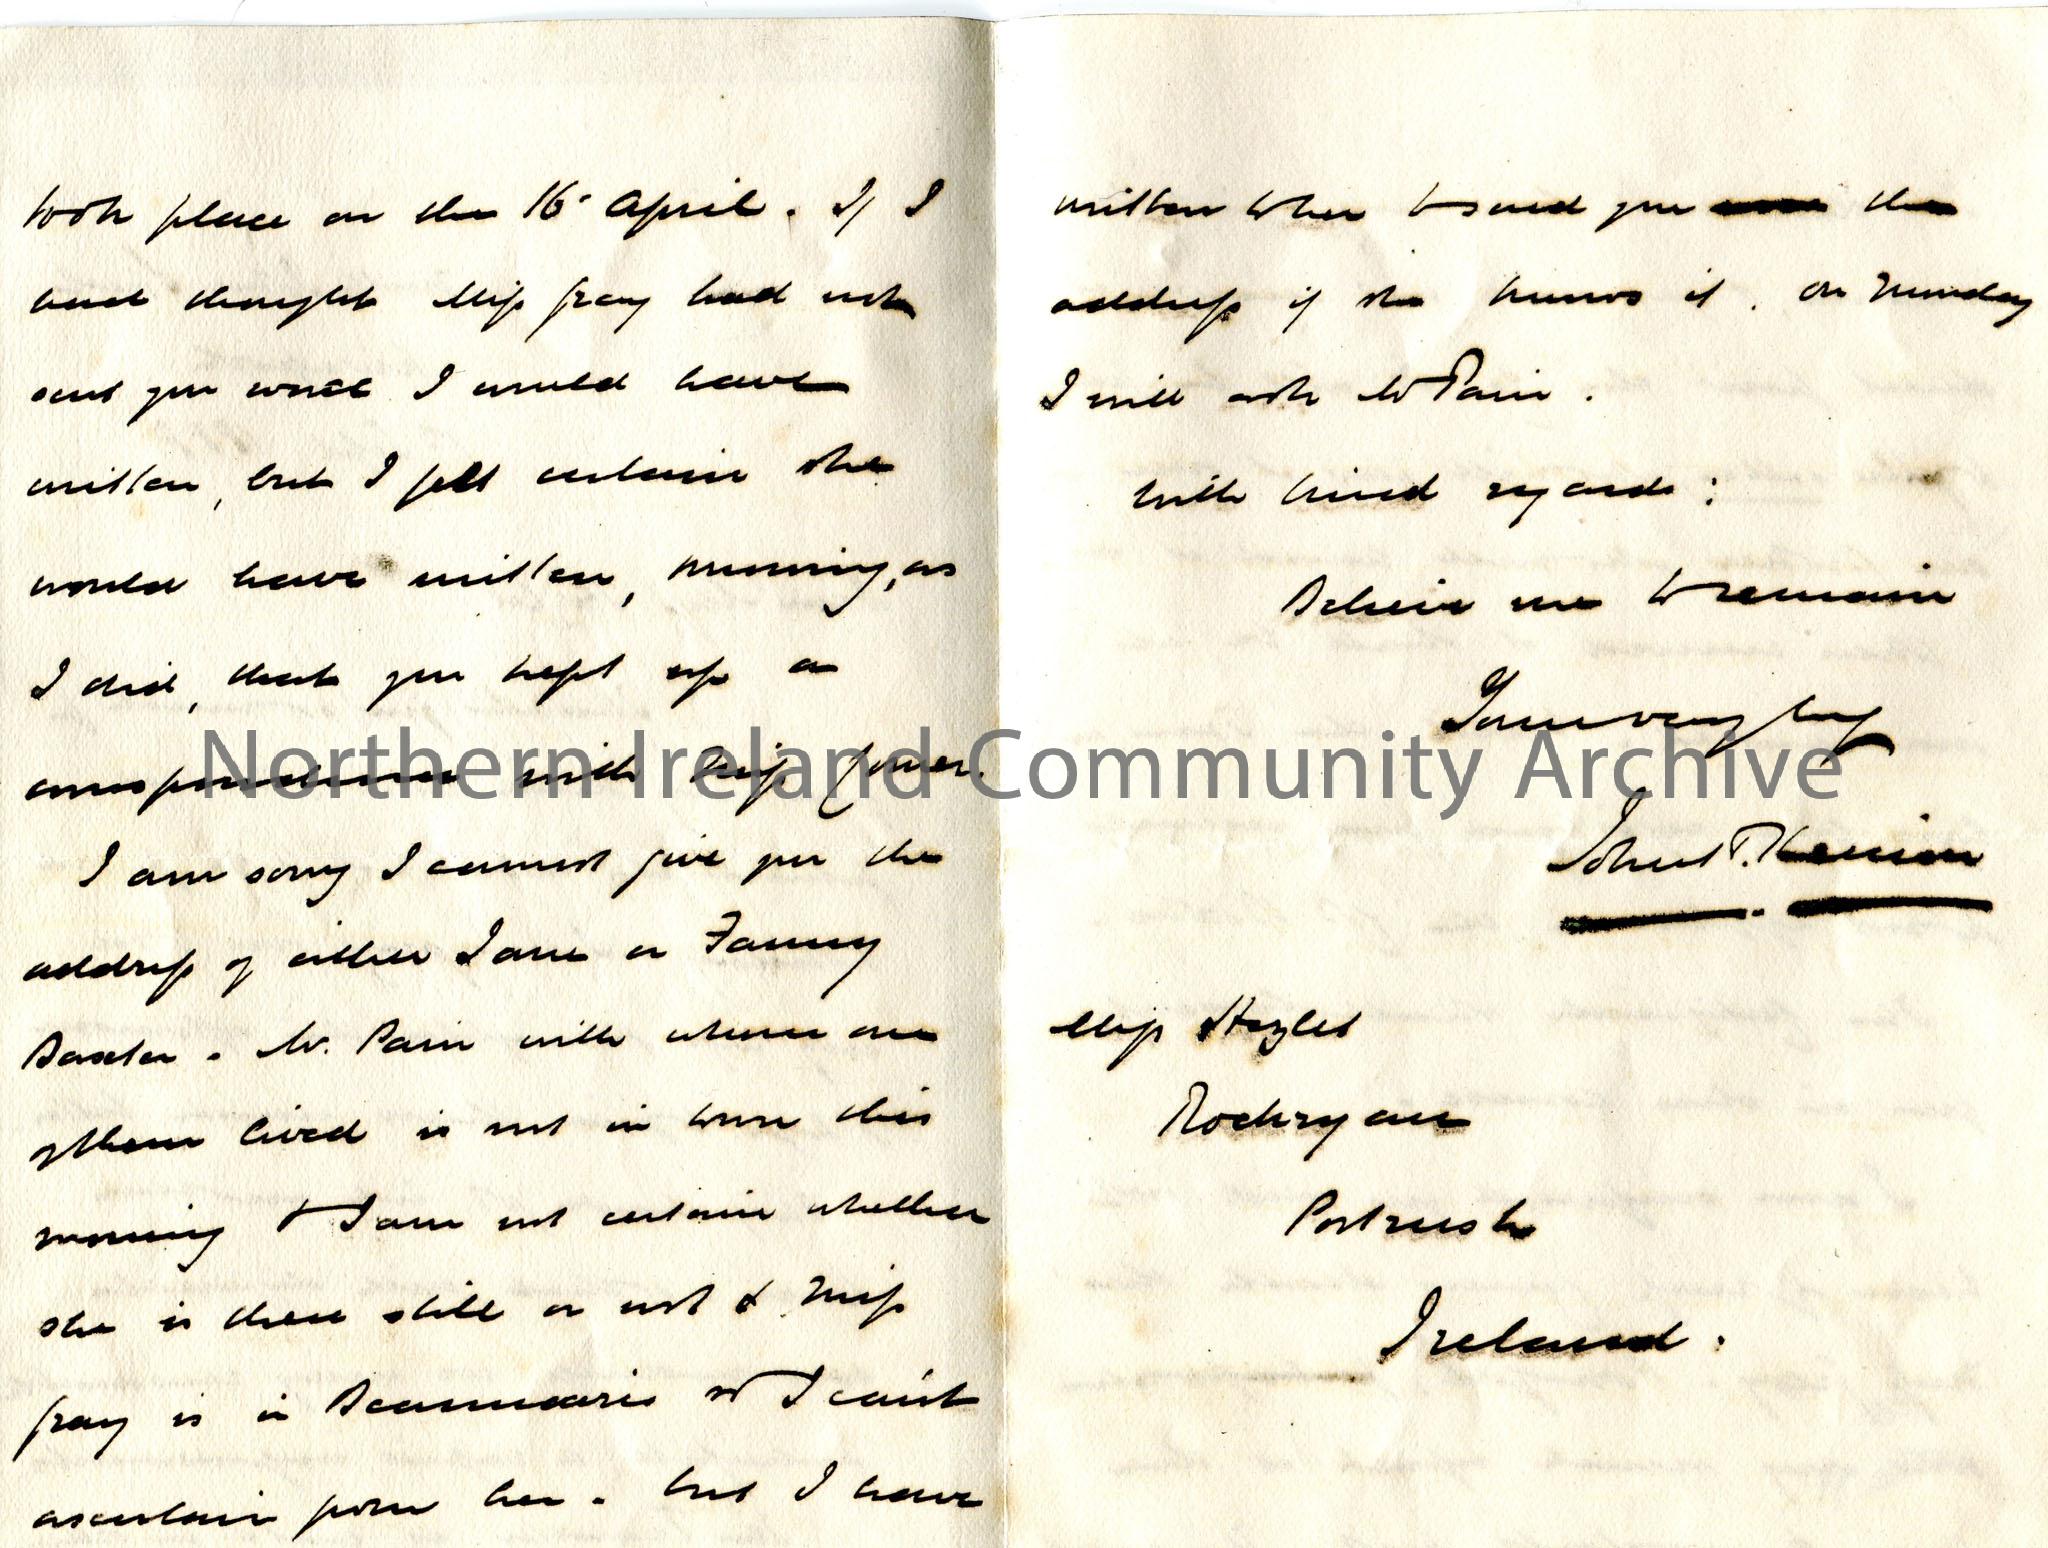 took place on the 16 April. If I
had thought Miss Gray had not
sent you word I would have
written, but I felt certain she
would have written, knowing, as
I did, that you kept up a
correspondence with Miss
I am sorry I cannot give you the
address of either Jane or Fanny
Baxter. Mr. Pain with whom one
of them lived is not in town this
morning & I am not certain whether
she is there still or not & Miss
Gray is in Beaumaris so I can't
ascertain from her. but I have
written to her to send you the
address if she knows it. On Monday
I will ask Mr Pain.
With kind regards:
Believe me to remain
Yours very truly
John T.
Miss Hezlet
Rockryan
Portrush
Ireland.
Northern Ireland Community Archive